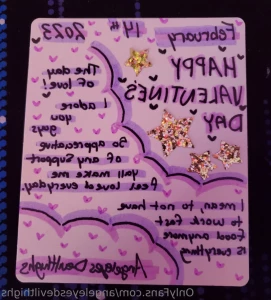 February 14th 2023
HAPPY
VALENTINES
DAY
The day
of love!
I adore
you
guys
So appreciative
of any support
yall make me
feel loved everyday.
I mean, to not have
to work fast
food anymore
is everything
Angeleyes Devilthighs
OnlyFans.com/angeleyesdevilthighs